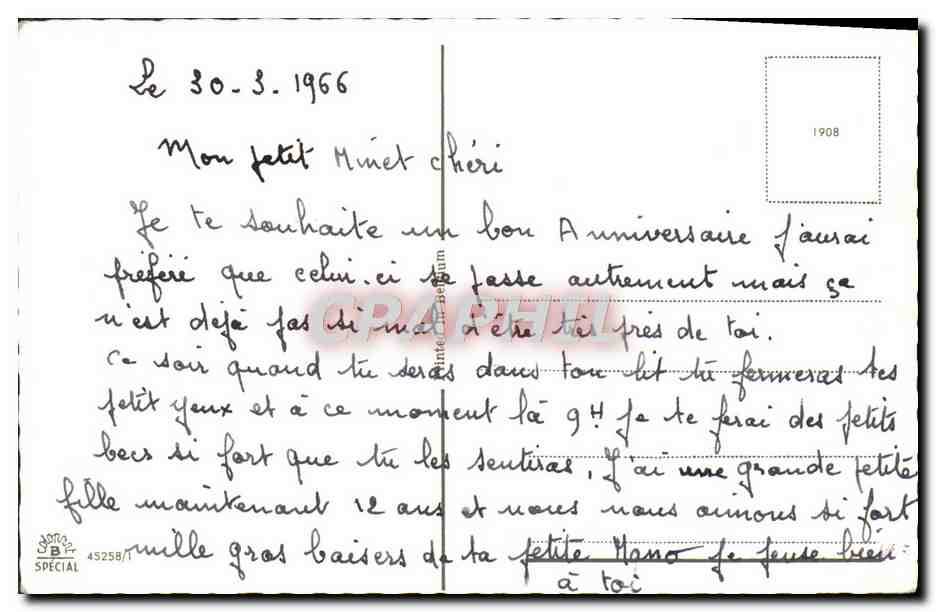 Le 30-3-1966
1908
Mon petit Minet chéri
Je te souhaite un bon Anniversaire j'aurai
préféré que celui-ci se passe autrement mais ça
n'est déjà pas si mal d'être très près de toi.
Ce soir quand tu seras dans ton lit tu fermeras tes
petit yeux et à ce moment là 9H je te ferai des petits
becs si fort que tu les sentiras, J'ai une grande petite
fille maintenant 12 ans et nous nous aimons si fort
mille gros baisers de ta petite Mano je pense bien
à toi
Printed in Belgium
CPAPHIL
COLORPRINT
B
SPECIAL
45258/1